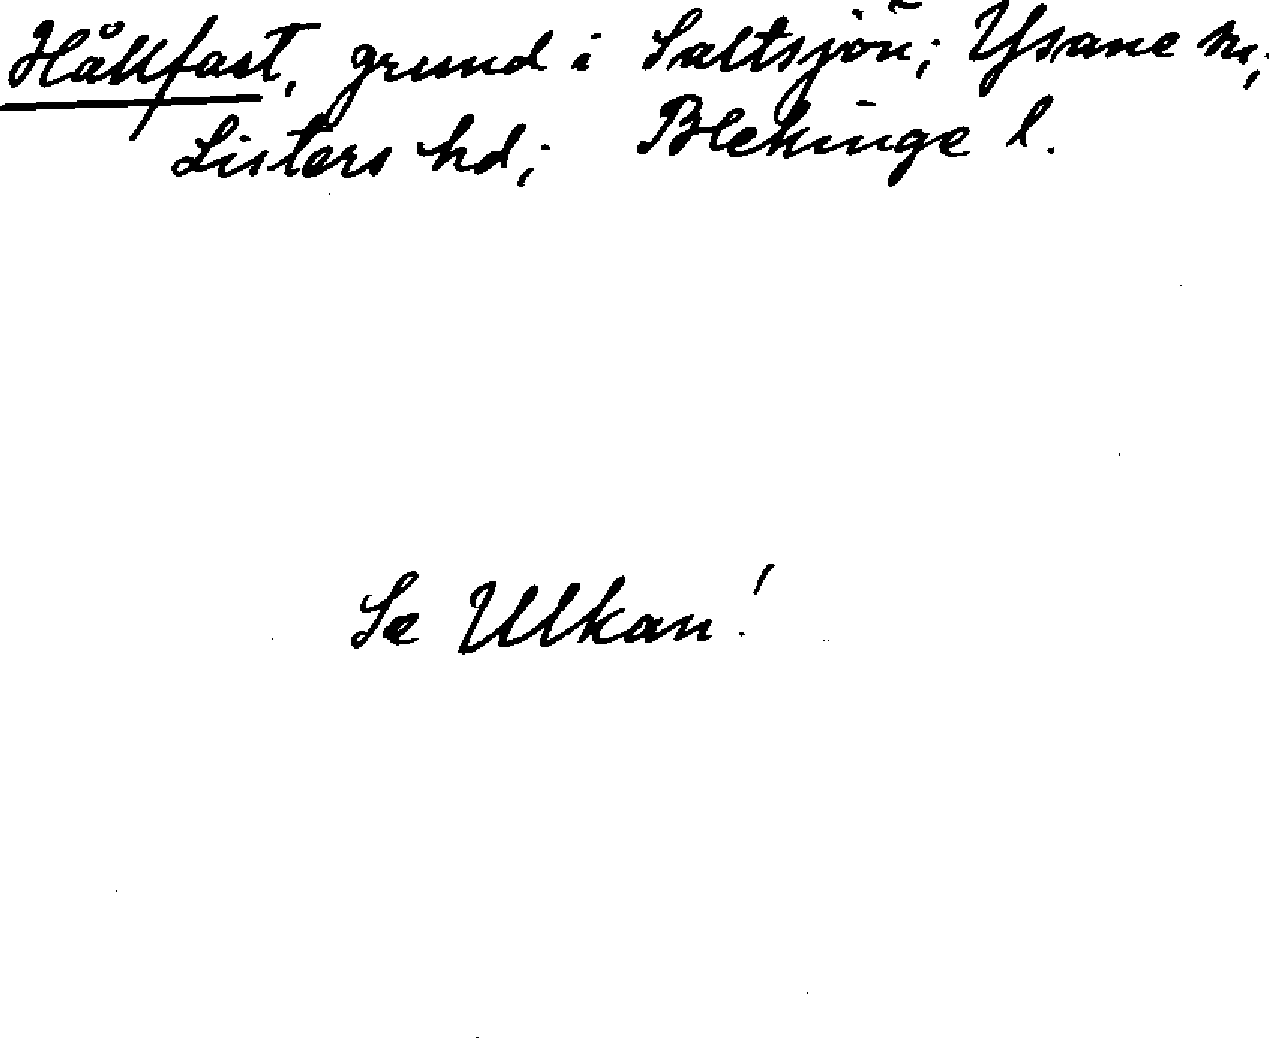 Hållfast, grund i Saltsjön; Ysane sn;
Listers hd; Blekinge l.
Se Ulkan!